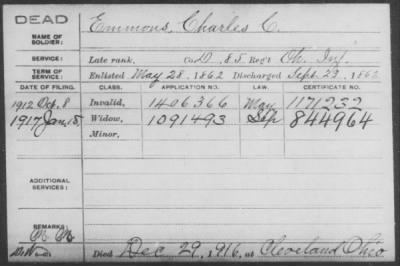 DEAD
NAME OF SOLDIER: Emmons, Charles C.
SERVICE: Late rank, Co. D, 85 Reg't Oh. Inf.
TERM OF SERVICE: Enlisted May 28, 1862 Discharged Sept. 23, 1862
DATE OF FILING. CLASS. APPLICATION NO. LAW. CERTIFICATE NO.
1912 Oct. 8 Invalid, 1406366 May 1171232
1917 Jan. 15 Widow, 1091493 Sep 844964
Minor,
ADDITIONAL SERVICES:
REMARKS:
Died Dec 29, 1916, at Cleveland Ohio